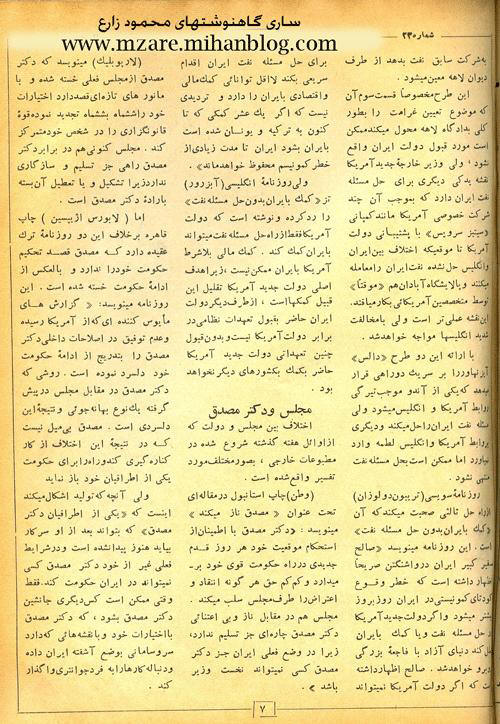 ساری گاهنوشتهای محمود زارع
www.mzare.mihanblog.com
شماره ۲۳۰
به شرکت سابق نفت بدهد از طرف
دیوان لاهه معین میشود.
این طرح مخصوصاً قسمت سوم آن
که موضوع تعیین غرامت را بطور
کلی بدادگاه لاهه محول میکند ممکن
است مورد قبول دولت ایران واقع
شود؛ ولی وزیر خارجهٔ جدید آمریکا
نقشه یدکی دیگری برای حل مسئله
نفت ایران دارد که بموجب آن چند
شرکت خصوصی آمریکا مانند کمپانی
(سیتیز سرویس) با پشتیبانی دولت
آمریکا تا موقعیکه اختلاف بین ایران
وانگلیس حل نشده نفت ایران را معامله
کنند و پالایشگاه آبادان هم «موقتاً»
توسط متخصصین آمریکائی بکار میافتد.
این نقشه عملی تر است ولی با مخالفت
شدید انگلیسها مواجه خواهد شد.
با ارائه این دو طرح «دالس»
آیزنهاور را بر سر یک دوراهی قرار
میدهد که یکی از آندو موجب تیرگی
روابط آمریکا و انگلیس میشود ولی
مسئله نفت ایران را حل میکند و دیگری
بروابط آمریکا وانگلیس لطمه وارد
نمیاورد اما ممکن است بحل مسئله نفت
منتهی نشود.
روزنامهٔ سویسی (تریبون دولوزان)
از راه حل ثالثی صحبت میکند که آن
«کمک بایران بدون حل مسئله نفت»
است. این روزنامه مینویسد «صالح
سفیر کبیر ایران در واشنگتن صریحاً
اظهار داشته است که خطر وقوع
کودتای کمونیستی در ایران روز بروز
بیشتر میشود و اگر دولت جدید آمریکا
در حل مسئله نفت و یا کمک بایران
تعلل کند دنیای آزاد با فاجعهٔ بزرگی
روبرو خواهد شد. صالح اظهار داشته
است که اگر دولت آمریکا نمیتواند
برای حل مسئله نفت ایران اقدام
سریعی بکند لااقل توانائی کمک مالی
و اقتصادی بایران را دارد و تردیدی
نیست که اگر یک عشر کمکی که تا
کنون به ترکیه و یونان شده است
بایران بشود ایران تا مدت زیادی از
خطر کمونیسم محفوظ خواهد ماند».
ولی روزنامهٔ انگلیسی (آبزرور)
تز «کمک بایران بدون حل مسئله نفت»
را رد کرده و نوشته است که دولت
آمریکا فقط از راه حل مسئله نفت میتواند
بایران کمک کند. کمک مالی بلاشرط
آمریکا بایران ممکن نیست، زیرا هدف
اصلی دولت جدید آمریکا تقلیل این
قبیل کمکها است، از طرف دیگر دولت
ایران حاضر بقبول تعهدات نظامی در
برابر دولت آمریکا نیست و بدون قبول
چنین تعهداتی دولت جدید آمریکا
حاضر بکمک بکشورهای دیگر نخواهد
بود.
مجلس و دکتر مصدق
اختلاف بین مجلس و دولت که
از اوائل هفته گذشته شروع شده در
مطبوعات خارجی، بصور مختلف مورد
تفسیر واقع شده است.
(وطن) چاپ استانبول در مقاله‌ای
تحت عنوان «مصدق ناز میکند»
مینویسد: «دکتر مصدق با اطمینان از
استحکام موقعیت خود هر روز قدم
جدیدی در راه حکومت قوی خود بر-
میدارد و کم کم حق هر گونه انتقاد و
اعتراض را از طرف مجلس سلب میکند.
مجلس هم در مقابل ناز و بی اعتنائی
دکتر مصدق چاره‌ای جز تسلیم ندارد،
زیرا در وضع فعلی ایران جز دکتر
مصدق کسی نمیتواند نخست وزیر
باشد».
(لاریوبلیک) مینویسد که دکتر
مصدق از مجلس فعلی خسته شده و با
مانور های تازه‌ای قصد دارد اختیارات
خود را شش ماه بشش ماه تجدید نموده قوهٔ
قانونگزاری را در شخص خود متمرکز
کند. مجلس کنونی هم در برابر دکتر
مصدق راهی جز تسلیم و سازگاری
ندارد زیرا تشکیل و یا تعطیل آن بسته
بارادهٔ دکتر مصدق است.
اما (لابورس اژیپسین) چاپ
قاهره بر خلاف این دو روزنامهٔ ترک
عقیده دارد که مصدق قصد تحکیم
حکومت خود را ندارد و بالعکس از
ادامهٔ حکومت خسته شده است. این
روزنامه مینویسد: «گزارش های
مأیوس کننده ای که از آمریکا رسیده
و عدم توفیق در اصلاحات داخلی دکتر
مصدق را بتدریج از ادامهٔ حکومت
خود دلسرد نموده است. روشی که
دکتر مصدق در مقابل مجلس در پیش
گرفته یک نوع بهانه جوئی و نتیجهٔ این
دلسردی است. مصدق بی میل نیست
که در نتیجهٔ این اختلاف از کار
کناره گیری کند و راه را برای حکومت
یکی از اطرافیان خود باز نماید
ولی آنچه که تولید اشکال میکند
اینست که «یکی از اطرافیان دکتر
مصدق» که بتواند بعد از او سر کار
بیاید هنوز پیدا نشده است و در شرایط
فعلی غیر از خود دکتر مصدق کسی
نمیتواند در ایران حکومت کند. فقط
وقتی ممکن است کس دیگری جانشین
دکتر مصدق بشود، که دکتر مصدق
با اختیارات خود و با نقشه هائی که دارد
سر و سامانی بوضع آشفته ایران داده
و دنباله کارها را به فرد جوانتری واگذار
کند.
۷